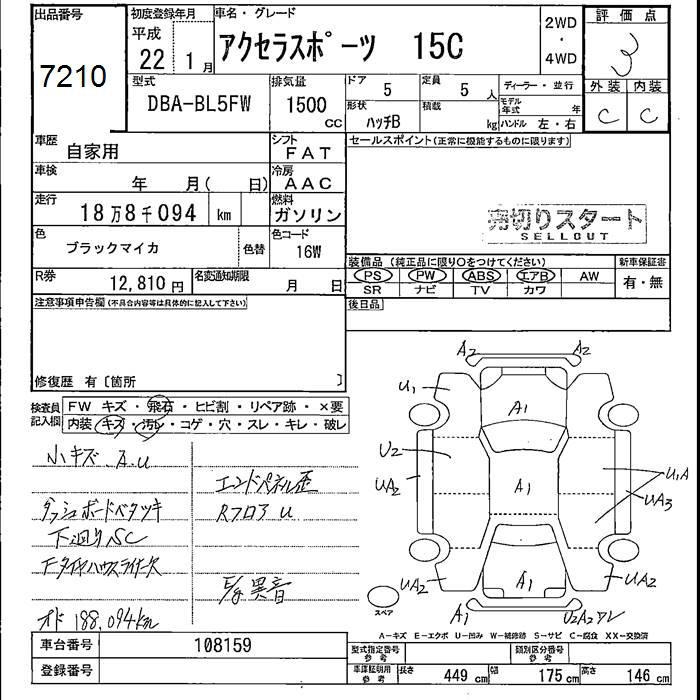 出品番号
7210
初度登録年月
平成
22 1月
車名・グレード
アクセラスポーツ 15C
2WD
・
4WD
評価点
3
外装 内装
C C
型式
DBA-BL5FW
排気量
1500
CC
ドア
5
定員
5 人
形状
ハッチB
積載
kg
ディーラー・並行
モデル年式 年
ハンドル 左・右
車歴
自家用
シフト
FAT
セールスポイント(正常に機能するものに限ります)
車検
年 月( 日)
冷房
AAC
走行
18万8千094 km
燃料
ガソリン
売切りスタート
SELLOUT
色
ブラックマイカ
色替
色コード
16W
装備品(純正品に限り○をつけてください)
新車保証書
PS PW ABS エアB AW
SR ナビ TV カワ
有・無
R券
12,810円
名変通知期限
月 日
後日品
注意事項申告欄(不具合内容等は具体的に記入して下さい)
修復歴 有〔箇所 〕
検査員記入欄
FW キズ・飛石・ヒビ割・リペア跡・×要
内装 キズ・汚レ・コゲ・穴・スレ・キレ・破レ
小キズ.A.U
エンドパネル歪
ダッシュボードベタツキ
Rフロア U
下廻りSC
Fタイヤハウスライナー欠
異音
オド 188,094km
A2 A2
U1
A1
U2
UA2
A1
U1A
UA3
UA2
A1
UA2
A1
U2A2アレ
スペア
A-キズ E-エクボ U-凹み W-補修跡 S-サビ C-腐食 XX-交換済
車台番号
108159
登録番号
型式指定番号
参考
類別区分番号
参考
車庫証明用
参考
長さ
449 cm
幅
175 cm
高さ
146 cm